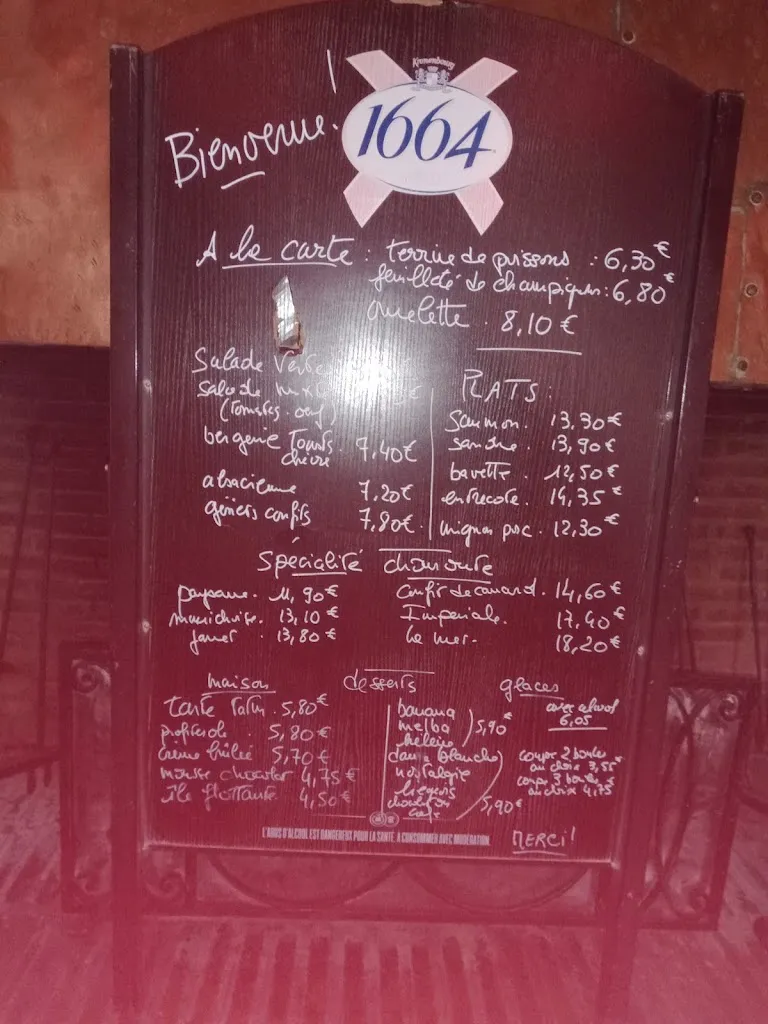 Bienvenue!
Kronenbourg
1664
A la carte : terrine de poissons : 6,30€
feuilleté de champignons : 6,80€
omelette . 8,10€
Salade Verte
Salade mixte
(tomates. oeuf)
bergerie Tours
chèvre 7,40€
alsacienne 7,20€
gésiers confits 7,80€
PLATS :
Saumon . 13,30€
sandre . 13,90€
bavette . 12,50€
entrecote . 14,35€
mignon porc . 12,30€
Spécialité choucroute
paysanne . 11,90€
munichoise . 13,10€
jarret . 13,80€
Confit de canard . 14,60€
Impériale . 17,40€
la mer . 18,20€
maison
Tarte Tatin . 5,80€
profiterole . 5,80€
Crème brûlée 5,70€
mousse chocolat 4,75€
île flottante . 4,50€
desserts
banana
melba
helene
5,90€
dame blanche
nostalgie
liegeois
chocolat ou
café
5,90€
glaces
avec alcool
6,05
coupe 2 boules
au choix 3,55€
coupe 3 boules
au choix 4,75€
MERCI!
L'ABUS D'ALCOOL EST DANGEREUX POUR LA SANTÉ. A CONSOMMER AVEC MODÉRATION.